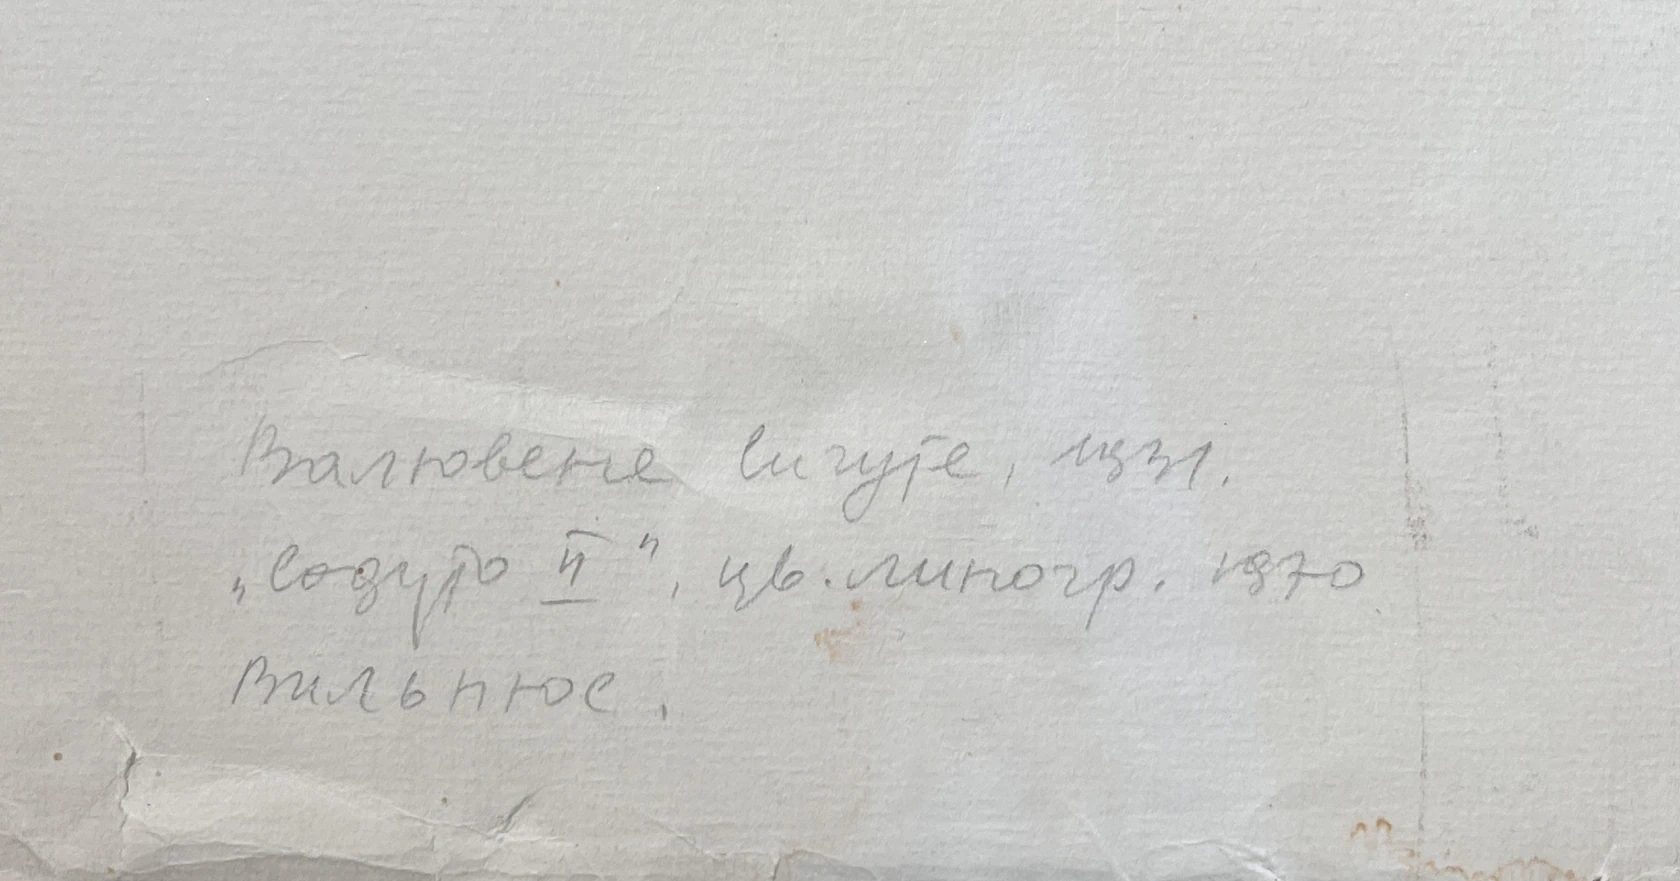 Валювене Сигуте, 1931.
„Содуто II", цв. линогр. 1970
Вильнюс.